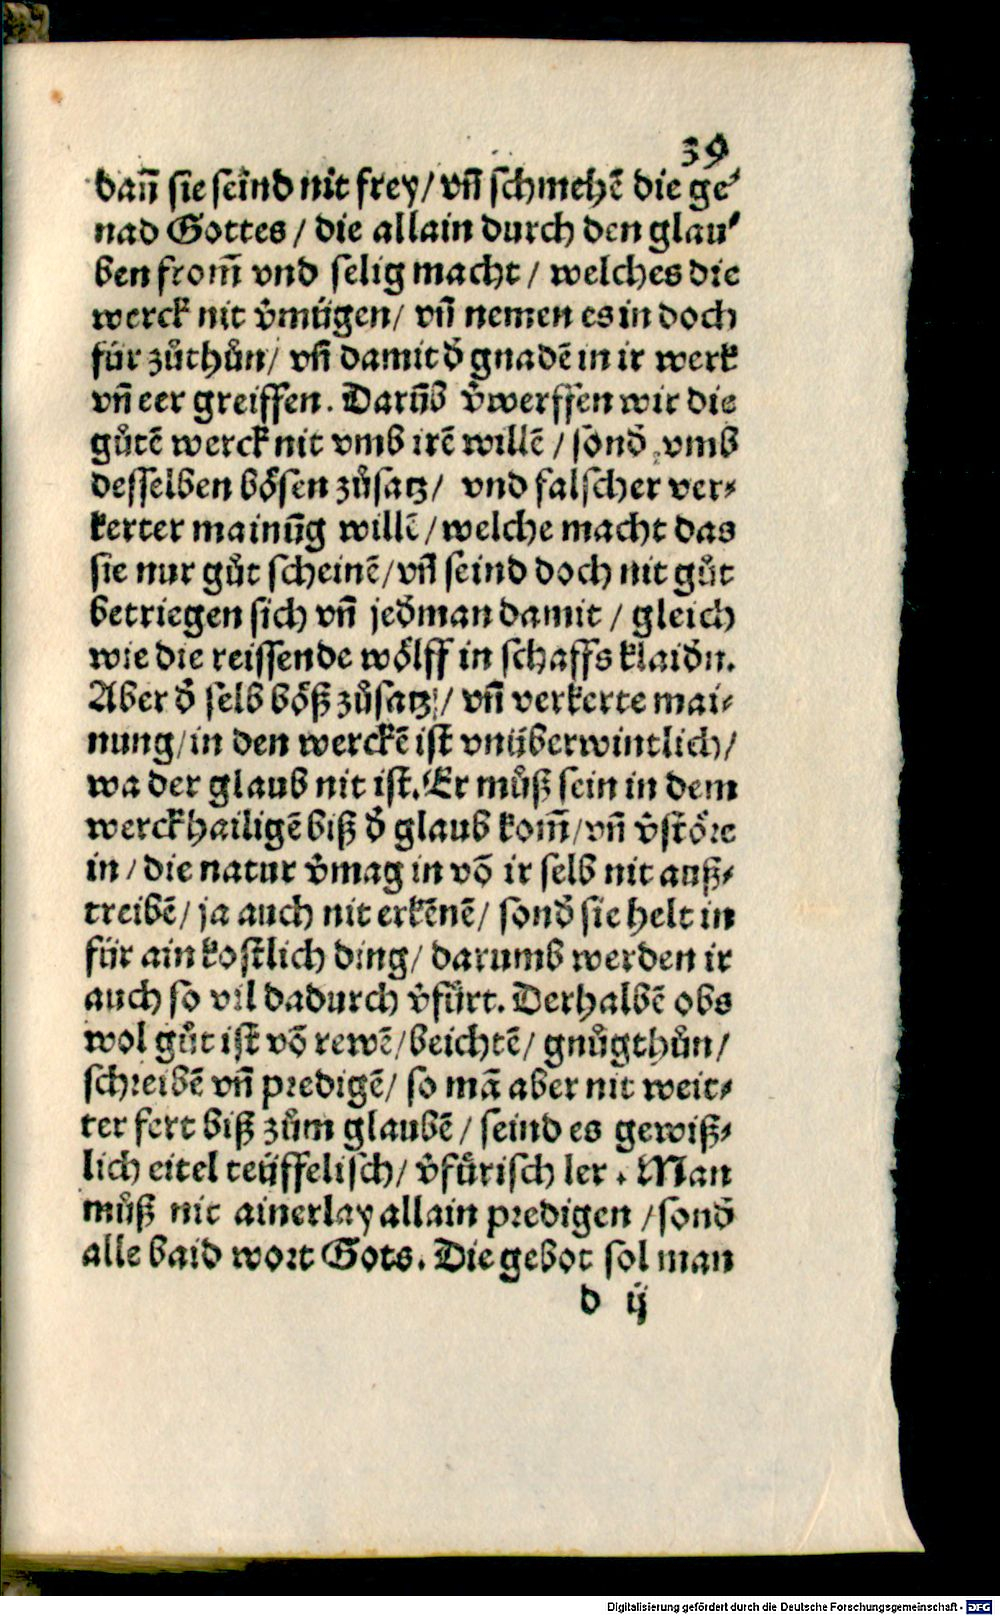 39
dañ sie seind nit frey/ vñ schmehẽ die ge⸗
nad Gottes/ die allain durch den glau⸗
ben from̃ vnd selig macht/ welches die
werck nit v̾mügen/ vñ nemen es in doch
für zůthůn/ vñ damit d̾ gnadẽ in ir werk
vñ eer greiffen. Darũb v̾werffen wir die
gůtẽ werck nit vmb irẽ willẽ/ sond̾ vmb
desselben bösen zůsatz/ vnd falscher ver⸗
kerter mainũg willẽ/ welche macht das
sie nur gůt scheinẽ/ vñ seind doch nit gůt
betriegen sich vñ jed̾man damit/ gleich
wie die reissende wölff in schaffs klaid̾n.
Aber d̾ selb böß zůsatz/ vñ verkerte mai⸗
nung/ in den werckẽ ist vnüberwintlich/
wa der glaub nit ist. Er můß sein in dem
werckhailigẽ biß d̾ glaub kom̃/ vñ v̾störe
in/ die natur v̾mag in võ ir selb nit auß⸗
treibẽ/ ja auch nit erkẽnẽ/ sond̾ sie helt in
für ain kostlich ding/ darumb werden ir
auch so vil dadurch v̾fürt. Derhalbẽ obs
wol gůt ist võ rewẽ/ beichtẽ/ gnůgthůn/
schreibẽ vñ predigẽ/ so mã aber nit weit⸗
ter fert biß zům glaubẽ/ seind es gewiß⸗
lich eitel teüffelisch/ v̾fürisch ler. Man
můß nit ainerlay allain predigen/ sond̾
alle baid wort Gots. Die gebot sol man
d ij
Digitalisierung gefördert durch die Deutsche Forschungsgemeinschaft - DFG